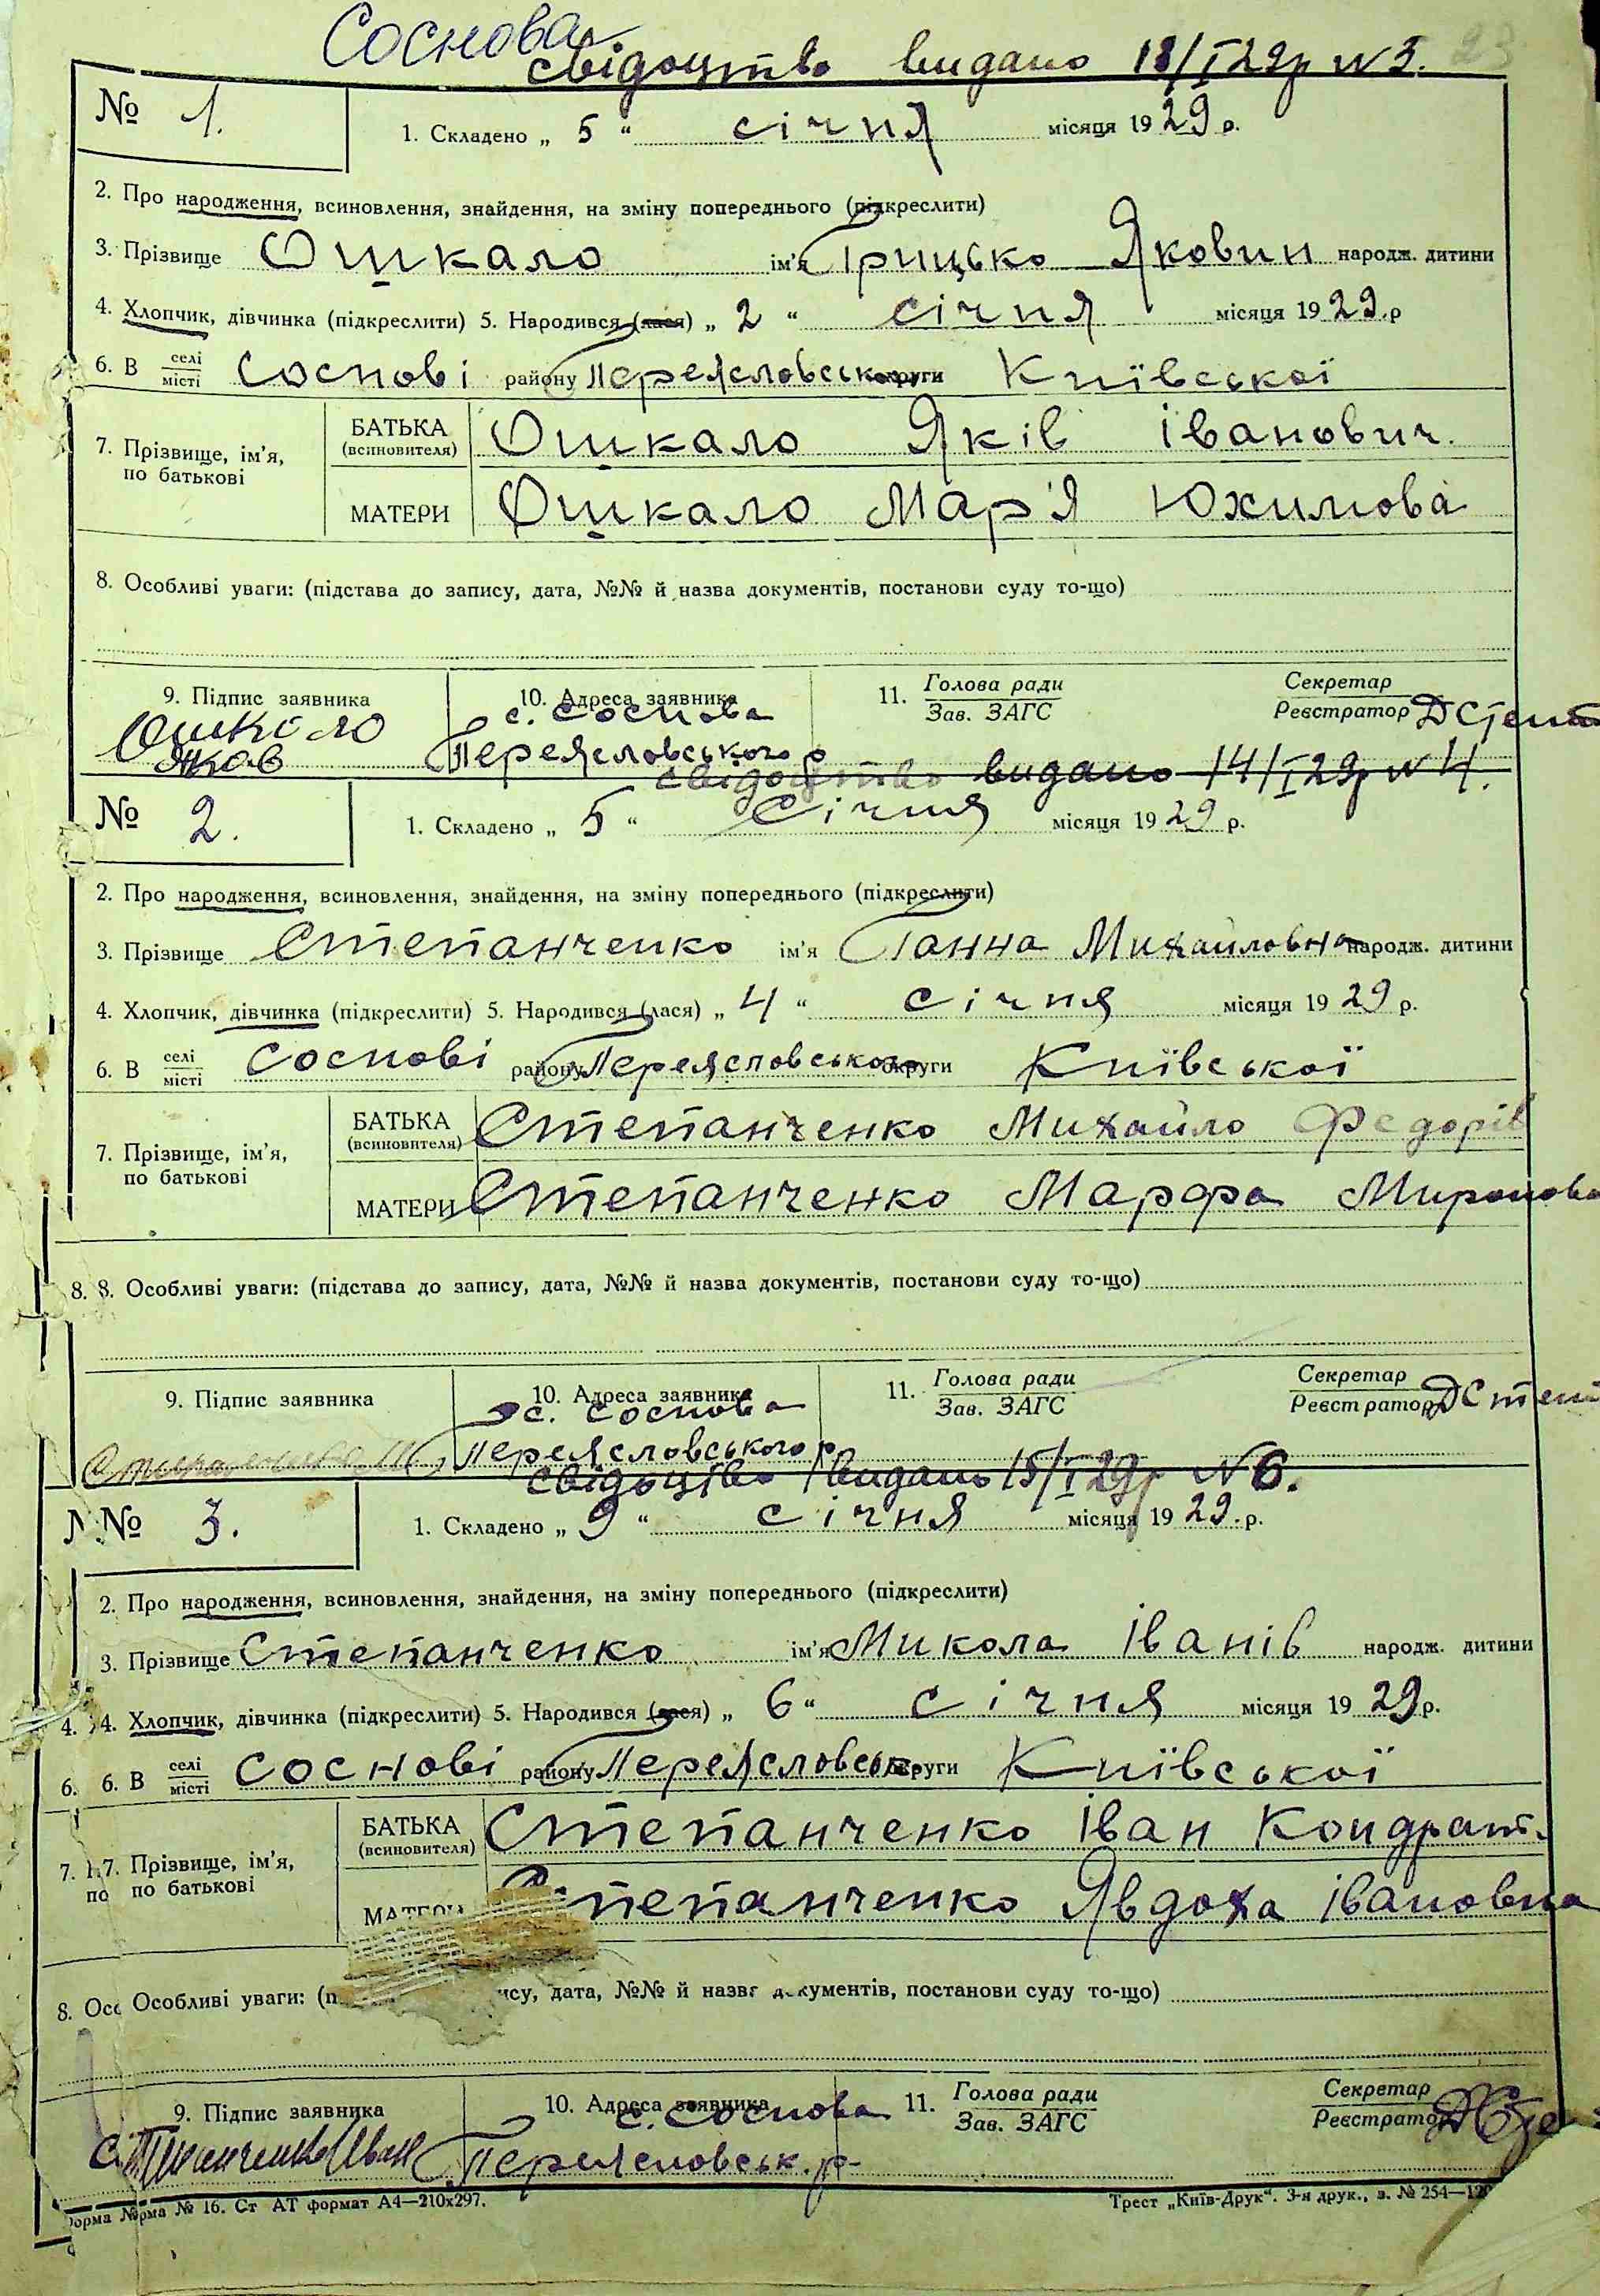 Соснова
свідоцтво видано 18/I 29р N 3. 23
№ 1.
1. Складено „ 5 “ січня місяця 1929 р.
2. Про народження, всиновлення, знайдення, на зміну попереднього (підкреслити)
3. Прізвище Ошкало ім'я Грицько Яковин народж. дитини
4. Хлопчик, дівчинка (підкреслити) 5. Народився (лася) „ 2 “ січня місяця 1929.р
6. В селі місті Соснові району Переясловськ округи Київської
7. Прізвище, ім'я, по батькові
БАТЬКА (всиновителя) Ошкало Яків Іванович.
МАТЕРИ Ошкало Мар'я Юхимова
8. Особливі уваги: (підстава до запису, дата, №№ й назва документів, постанови суду то-що)
9. Підпис заявника 10. Адреса заявника 11. Голова ради Зав. ЗАГС Секретар Реєстратор
Ошкало Яков с. Соснова Переясловського р
свідоцтво видано 14/I 29р N 4.
№ 2.
1. Складено „ 5 “ Січня місяця 1929 р.
2. Про народження, всиновлення, знайдення, на зміну попереднього (підкреслити)
3. Прізвище Степанченко ім'я Ганна Михайловна народж. дитини
4. Хлопчик, дівчинка (підкреслити) 5. Народився (лася) „ 4 “ січня місяця 1929 р.
6. В селі місті Соснові району Переясловського округи Київської
7. Прізвище, ім'я, по батькові
БАТЬКА (всиновителя) Степанченко Михайло Федорів
МАТЕРИ Степанченко Марфа Миронова
8. 8. Особливі уваги: (підстава до запису, дата, №№ й назва документів, постанови суду то-що)
9. Підпис заявника 10. Адреса заявника 11. Голова ради Зав. ЗАГС Секретар Реєстратор
с. Соснова Переясловського р.
свідоцтво видано 15/I 29р N 6.
№ 3.
1. Складено „ 9 “ січня місяця 1929.р.
2. Про народження, всиновлення, знайдення, на зміну попереднього (підкреслити)
3. Прізвище Степанченко ім'я Микола Іванів народж. дитини
4. 4. Хлопчик, дівчинка (підкреслити) 5. Народився (лася) „ 6 “ січня місяця 1929р.
6. 6. В селі місті Соснові району Переясловськ. округи Київської
7. 7. Прізвище, ім'я, по по батькові
БАТЬКА (всиновителя) Степанченко Іван Кондрат.
МАТЕРИ Степанченко Явдоха Івановна
8. Осо Особливі уваги: (п ису, дата, №№ й назва документів, постанови суду то-що)
9. Підпис заявника 10. Адреса заявника 11. Голова ради Зав. ЗАГС Секретар Реєстратор
Степанченко Иван с. Соснова Переясловськ. р-
орма № рма № 16. Ст АТ формат А4—210х297. Трест „Київ-Друк“. 3-я друк., з. № 254—12